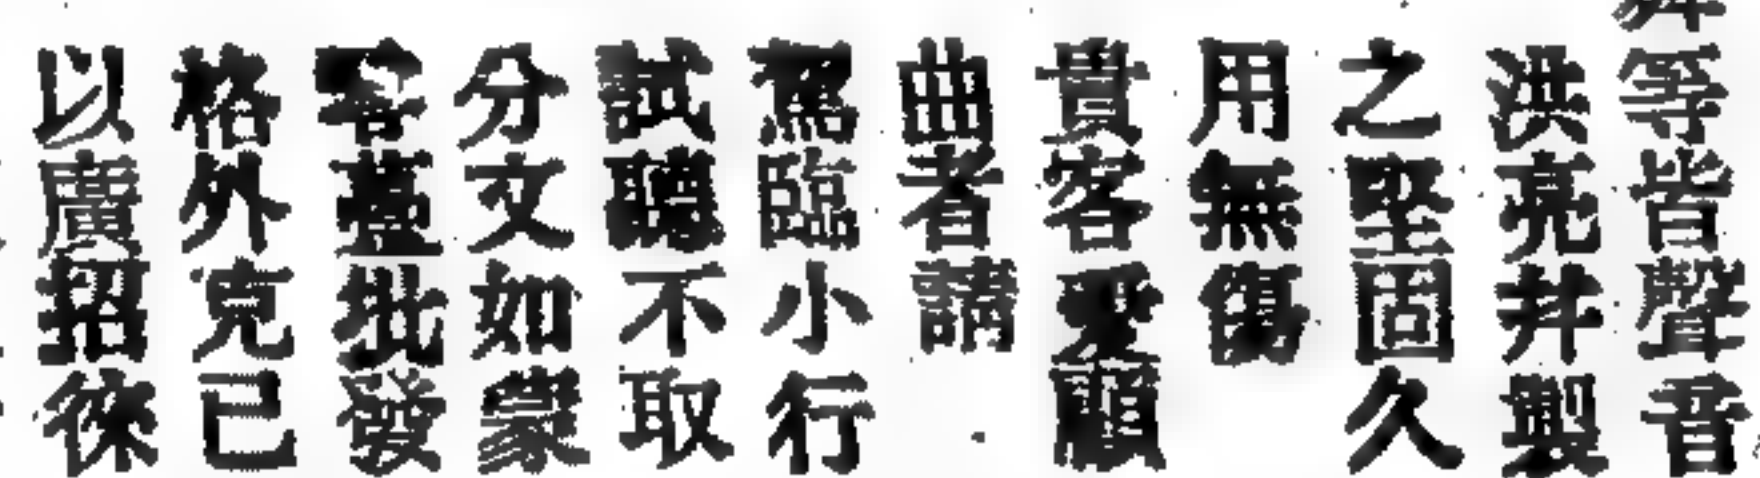 等皆聲音
洪亮并製
之堅固久
用無傷
貴客愛顧
曲者請
駕臨小行
試聽不取
分文如蒙
客臺批發
格外克己
以廣招徠